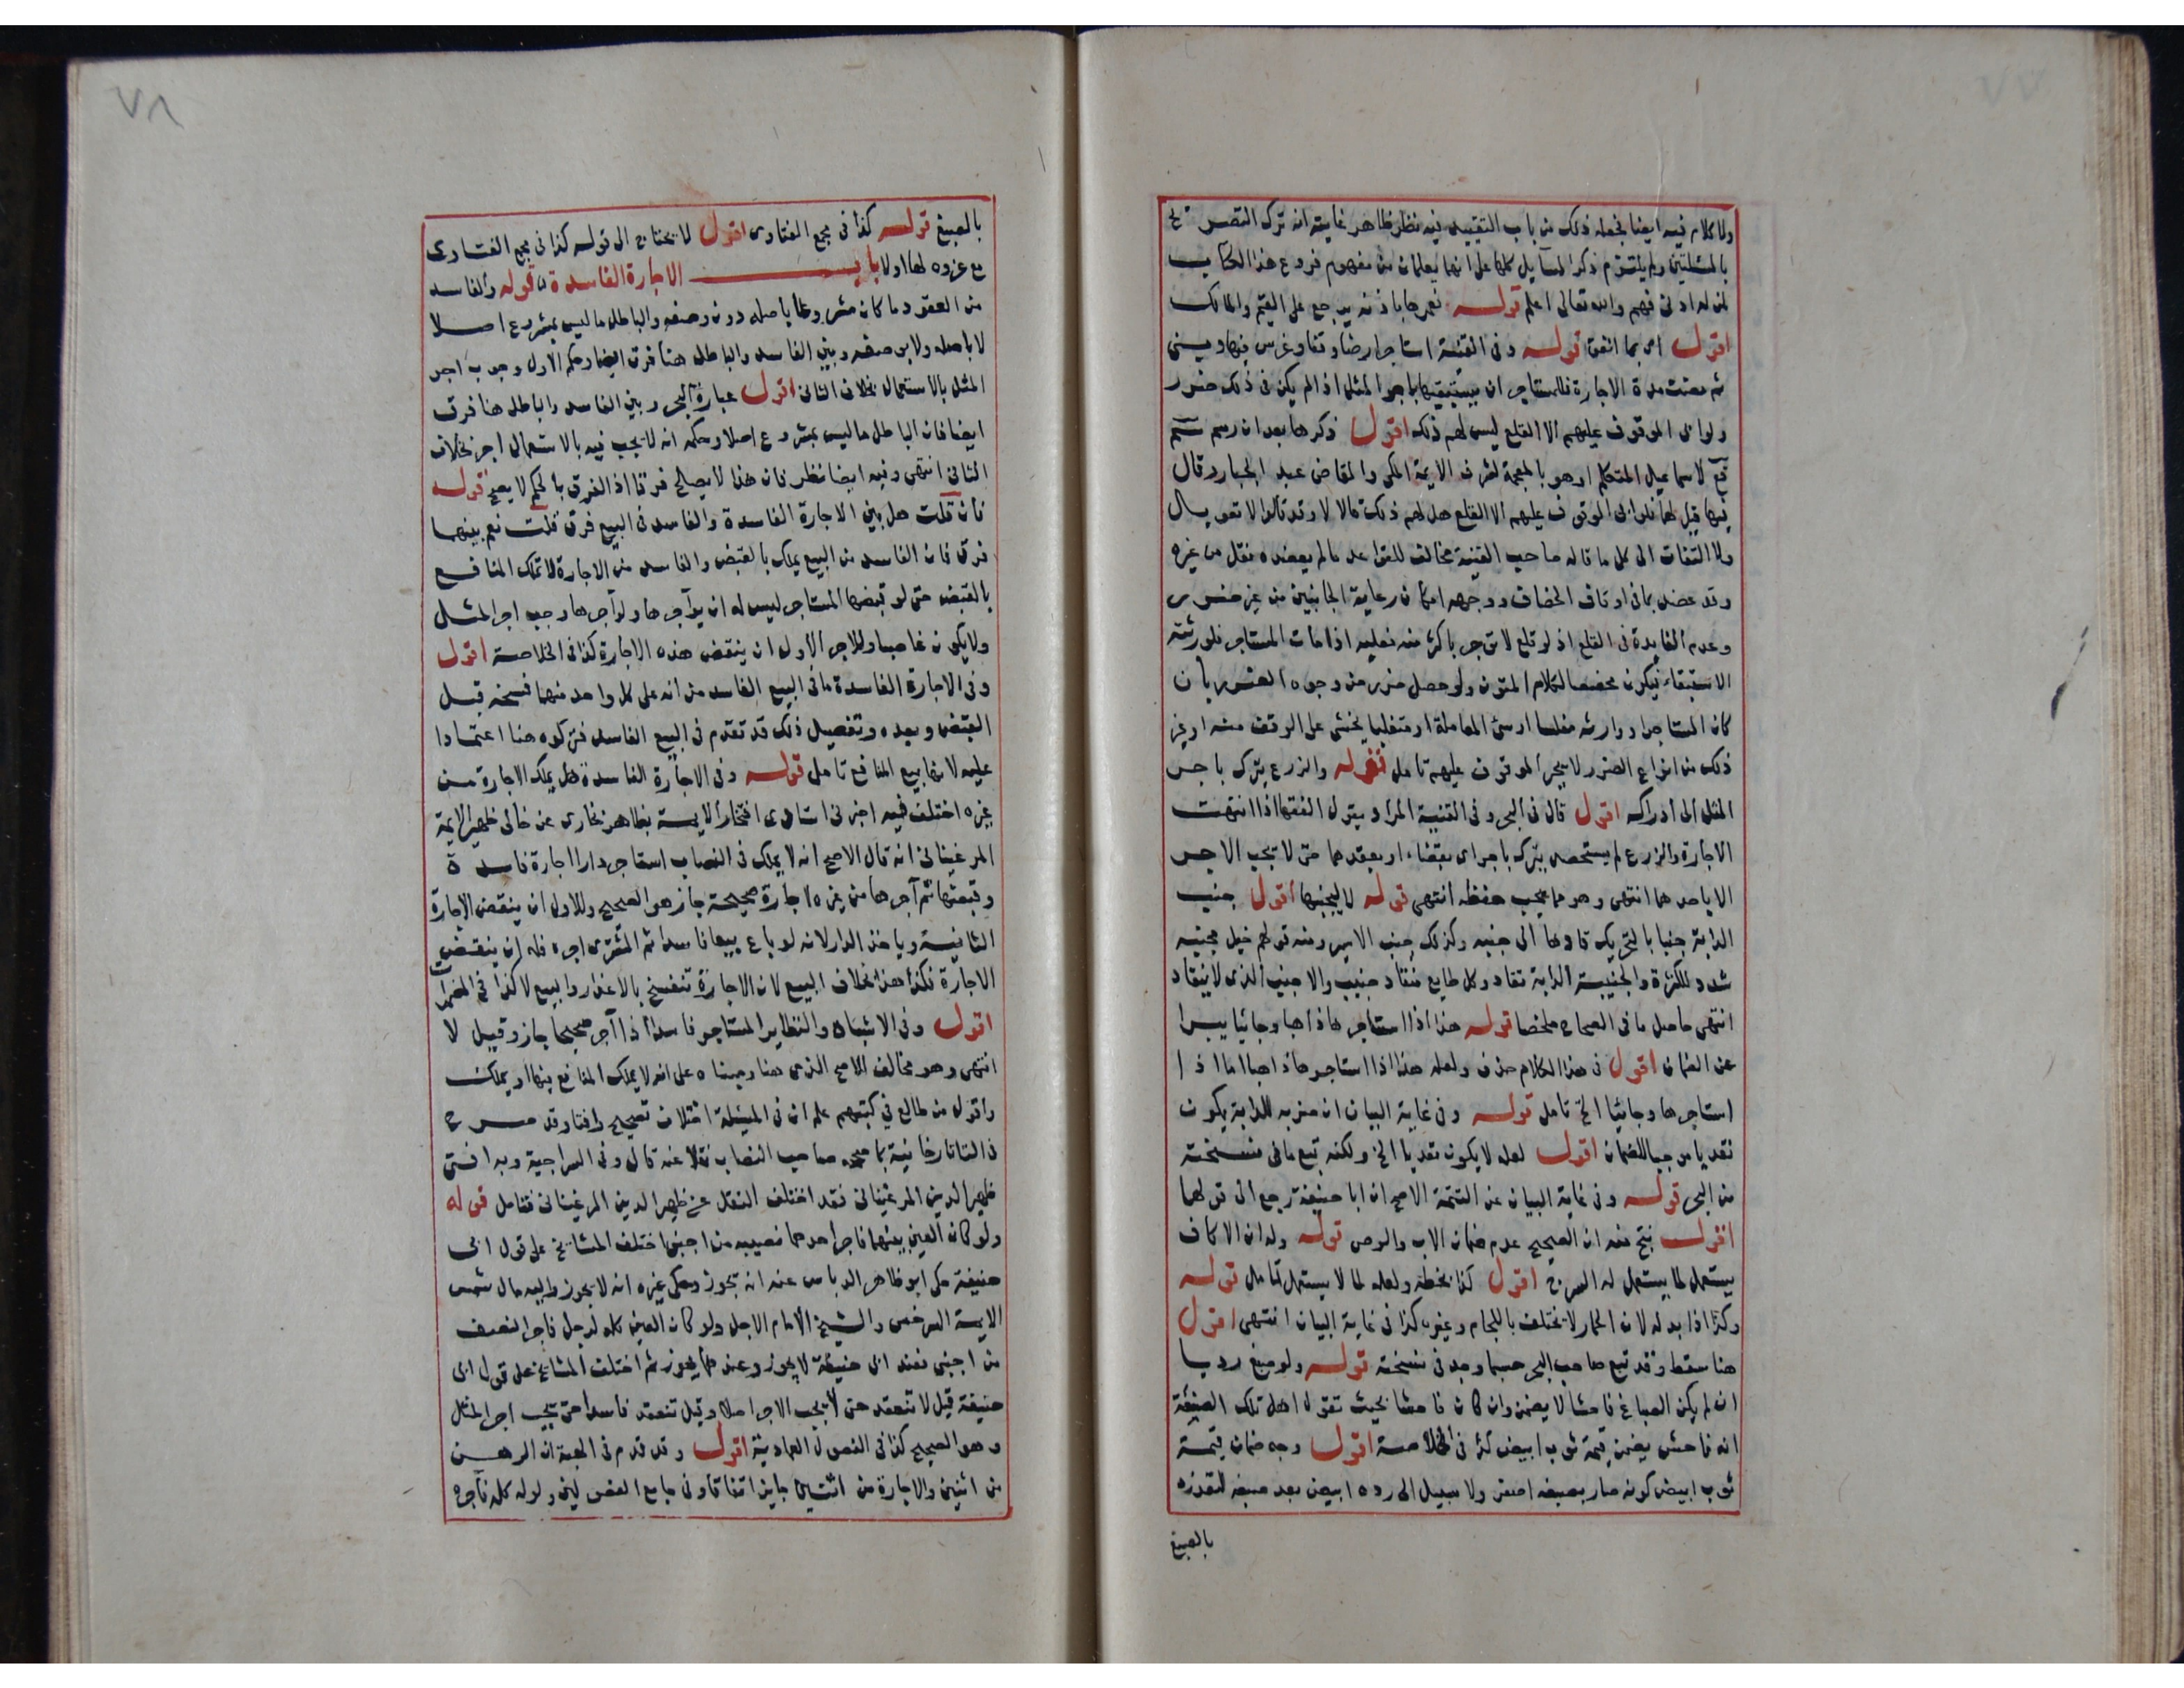 ٧٧
ولا كلام فيه ايضا فجعله ذلك من باب التقييد فيه نظر ظاهر غايته انه ترك التصريح
بالمسئلتين ولم يلتزم ذكر المسايل كلها على انهما يعلمان من مفهوم فروع هذا الكتاب
لمن له ادنى فهم والله تعالى اعلم قوله نعمرها باذنه يرجع على القيم والمالك
اقول اى بما انفق قوله وفى القنية استاجر ارضا وقفا وغرس فيها وبنى
ثم مضت مدة الاجارة فللمستاجر ان يستبقيها باجر المثل اذا لم يكن فى ذلك ضرر
ولو ابى الموقوف عليهم الا القلع ليس لهم ذلك اقول ذكرها بعد ان رسم
قع لاسماعيل المتكلم او هو بالمعجمة لشرف الايمة المكى والقاضى عبد الجبار وقال
فيها قيل لهما فلو ابى الموقوف عليهم الا القلع هل لهم ذلك قالا لا وقد قالوا لا تعويل
ولا التفات الى كل ما قاله صاحب القنية مخالف للقواعد ما لم يعضده نقل من غيره
وقد عضد بما فى اوقاف الخصاف ووجهه امكان رعاية الجانبين من غير ضرر
وعدم الفايدة فى القلع اذ لو قلع لا تؤجر باكثر منه فعليه اذا مات المستاجر فلورثته
الاستبقاء فيكون مخصصا لكلام المتون ولو حصل ضرر من وجوه الضرر بان
كان المستاجر او وارثه مفلسا او سئ المعاملة او متغلبا يخشى على الوقف منه او غير
ذلك من انواع الضرر لا يجبر الموقوف عليهم تامل قوله والزرع يترك باجر
المثل الى ادراكه اقول قال فى البحر وفى القنية المراد بقول الفقها اذا انتهت
الاجارة والزرع لم يستحصد يترك باجر اى بقضاء او بعقدهما حتى لا يجب الاجر
الا باحدهما انتهى وهو مما يجب حفظه انتهى قوله لا ليجنبها اقول جنيب
الدابة جنبا بالتحريك قادها الى جنبه وكذلك جنب الاسير ومنه قولهم خيل مجنبه
شدد للكثرة والجنيبة الدابة تقاد وكل طايع منقاد جنيب والاجنب الذى لا ينقاد
انتهى حاصل ما فى الصحاح ملخصا قوله هذا اذا استاجرها ذاهبا وجائيا يبرا
عن الضمان اقول فى هذا الكلام حذف ولعله هذا اذا استاجرها ذاهبا اما اذا
استاجرها وجائيا الخ تامل قوله وفى غاية البيان ان ضربه للدابة يكون
تعديا موجبا للضمان اقول لعله لا يكون تعديا الخ ولكنه تبع ما فى نسخته
من البحر قوله وفى غاية البيان عن التتمة الاصح ان ابا حنيفة رجع الى قولهما
اقول ينتج منه ان الصحيح عدم ضمان الاب والوصى قوله وله ان الاكاف
يستعمل لما يستعمل له السرج اقول كذا بخطه ولعله لما لا يستعمل تامل قوله
وكذا اذا بدله لان الحمار لا يختلف باللجام وغيره كذا فى غاية البيان انتهى اقول
هنا سقط وقد تبع صاحب البحر حسبما وجد فى نسخته قوله ولو صبغ رديا
ان لم يكن الصباغ فاحشا لا يضمن وان كان فاحشا بحيث تقول اهل تلك الصنعة
انه فاحش يضمن قيمة ثوب ابيض كذا فى الخلاصة اقول وجه ضمان قيمة
ثوب ابيض كونه صار بصبغه اصفر ولا سبيل الى رده ابيض بعد صبغه لتعذره
بالصبغ
٧٨
بالصبغ قوله كذا فى مجمع الفتاوى اقول لا يحتاج الى قوله كذا فى مجمع الفتاوى
مع عزوه لها اولا باب الاجارة الفاسدة قوله والفاسد
من العقود ما كان مشروعا باصله دون وصفه والباطل ما ليس بمشروع اصلا
لا باصله ولا بوصفه وبين الفاسد والباطل هنا فرق ايضا وحكم الاول وجوب اجر
المثل بالاستعمال بخلاف الثانى اقول عبارة البحر وبين الفاسد والباطل هنا فرق
ايضا فان الباطل ما ليس بمشروع اصلا وحكمه انه لا يجب فيه بالاستعمال اجر بخلاف
الثانى انتهى وفيه ايضا نظر فان هذا لا يصلح فرقا اذ الفرق بالحكم لا يصح قوله
فان قلت هل بين الاجارة الفاسدة والفاسد فى البيع فرق قلت نعم بينهما
فرق فان الفاسد من البيع يملك بالقبض والفاسد من الاجارة لا تملك المنافع
بالقبض حتى لو قبضها المستاجر ليس له ان يؤاجرها ولو آجرها وجب اجر المثل
ولا يكون غاصبا وللاجر الاول ان ينقض هذه الاجارة كذا فى الخلاصة اقول
وفى الاجارة الفاسدة ما فى البيع الفاسد من انه على كل واحد منهما فسخه قبل
القبض وبعده وتفصيل ذلك قد تقدم فى البيع الفاسد فتركوه هنا اعتمادا
عليه لانها بيع المنافع تامل قوله وفى الاجارة الفاسدة هل يملك الاجارة من
غيره اختلف فيه اخبرنى استاذى افتخار الايمة بظاهر بخارى عن خالى ظهير الايمة
المرغينانى انه قال الاصح انه لا يملك فى النصاب استاجر دارا اجارة فاسدة
وقبضها ثم آجرها من غيره اجارة صحيحة جاز هو الصحيح وللاول ان ينقض الاجارة
الثانية وياخذ الدار لانه لو باع بيعا فاسدا ثم المشترى اجره فله ان ينقض
الاجارة فكذا هذا بخلاف البيع لان الاجارة تنفسخ بالاعذار والبيع لا كذا فى المضمرات
اقول وفى الاشباه والنظاير المستاجر فاسدا اذا آجر صحيحا جاز وقيل لا
انتهى وهو مخالف للاصح الذى هنا ومبناه على انه لا يملك المنافع فيها او يملك
واقول من طالع فى كتبهم علم ان فى المسئلة اختلاف تصحيح وافتا وقد صرح
فى التاتارخانية بما صححه صاحب النصاب نقلا عنه قال وفى السراجية وبه افتى
ظهير الدين المرغينانى فقد اختلف النقل عن ظهير الدين المرغينانى فتامل قوله
ولو كان العين بينهما فاجر احدهما نصيبه من اجنبى اختلف المشايخ على قول ابى
حنيفة حكى ابو طاهر الدباس عنه انه يجوز وحكى غيره انه لا يجوز واليه مال شمس
الايمة السرخسى والشيخ الامام الاجل ولو كان العين كله لرجل فاجر النصف
من اجنبى فعند ابى حنيفة لا يجوز وعندهما يجوز ثم اختلف المشايخ على قول ابى
حنيفة قيل لا تنعقد حتى لا يجب الاجر اصلا وقيل تنعقد فاسدا حتى يجب اجر المثل
وهو الصحيح كذا فى الفصول العمادية اقول وقد قدم فى الهبة ان الرهن
من اثنين والاجارة من اثنين جايز اتفاقا وفى جامع الفصولين ولو له كله فآجره